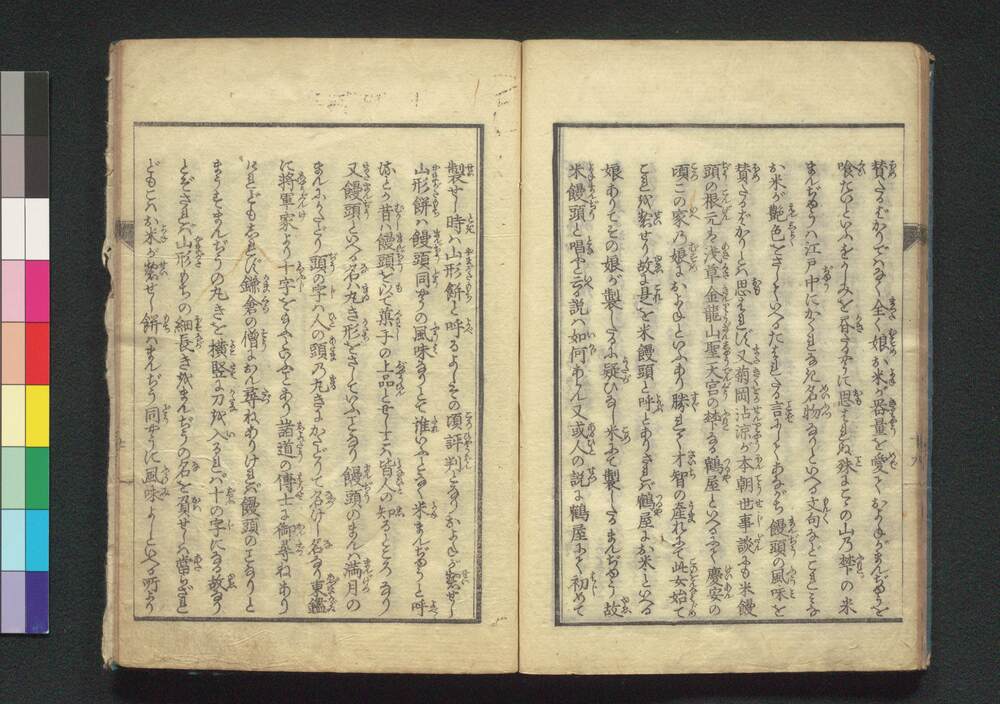 賛たるばかりではなく全く娘お米が器量を愛でておよねがまんぢうを
喰たいといふをうらみを
まんぢうハ江戸中にかくれなき名物なりといへる文句など
お米が艶色をさしていへるたはれたる言にしてあながち饅頭の風味を
賛たるばかりとハ思ハれず又菊岡沾涼が本朝世事談にも米饅
頭の根元ハ浅草金龍山聖天宮の梺なる鶴屋といへるにて慶安の
頃この家の娘およねといふあり勝れて才智の産れにて此女始て
これを製せり故に是を米饅頭と呼とありされバ鶴屋にお米といへる
娘ありてその娘が製したるに疑ひなし米にて製したるまんぢう故
米饅頭と唱やと云る説ハ如何あらん又或人の説に鶴屋にて初めて
製せし時ハ山形餅と呼るよしその頃評判となりおよねが製せし
山形餅ハ饅頭同やうの風味なりとて誰いふとなく米まんぢうと呼
しとか昔ハ饅頭を以て菓子の上品とせしことハ皆人の知るところなり
又饅頭といへる名ハ丸き形をさしていふことなり饅頭のまんハ満月の
まんにかたどり頭の字ハ人の頭の丸きにかたどりて名付し名なり東鑑
に将軍家より十字をたまふといふことあり諸道の博士に御尋ねあり
けれどもしれず鎌倉の僧におん尋ねありければ饅頭のことなりと
まうすまんぢうの丸きを横竪に刀を入るれバ十の字になる故なり
とぞされバ山形もちの細長きをまんぢうの名を負せしハ當らざれ
どもこハお米が製せし餅ハまんぢう同やうに風味よしといへる所より